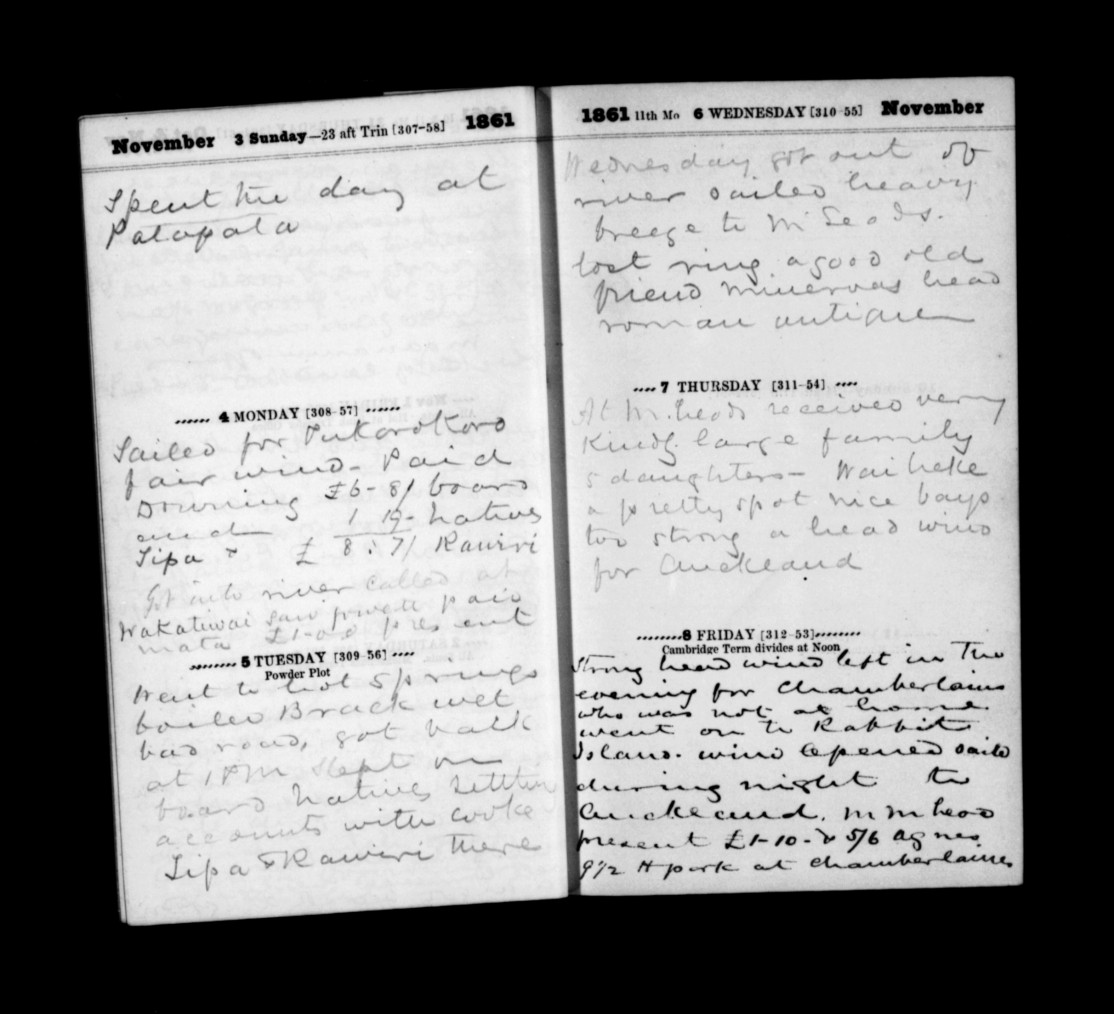 November 3 Sunday—23 aft Trin [307-58] 1861
Spent the day at
Patapata
4 MONDAY [308-57]
Sailed for Pukorokoro
fair wind - Paid
Downing £6-8/ board
and 1 19- natives
Tipa & £ 8:7/ Rawiri
Got into river called at
Wakatiwai saw private paid
mata £1-0-0 present
5 TUESDAY [309-56]
Powder Plot
Went to hot springs
boiled Brack wet
bad road, got back
at 1 PM slept on
board natives settling
accounts with cooke
Tipa & Rawiri there
1861 11th Mo 6 WEDNESDAY [310-55] November
Wednesday got out of
river sailed heavy
breeze to McLeods.
lost ring a good old
friend minervas head
roman antique
7 THURSDAY [311-54]
At M.heads received very
kindly large family
5 daughters - Waiheke
a pretty spot nice bays
too strong a head wind
for Auckland
8 FRIDAY [312-53]
Cambridge Term divides at Noon
Strong head wind left in the
evening for Chamberlains
who was not at home
went on to Rabbit
Island. wind opened sailed
during night to
Auckland. M
present £1-10- & 5/6 Agnes
9½ # pork at Chamberlaines